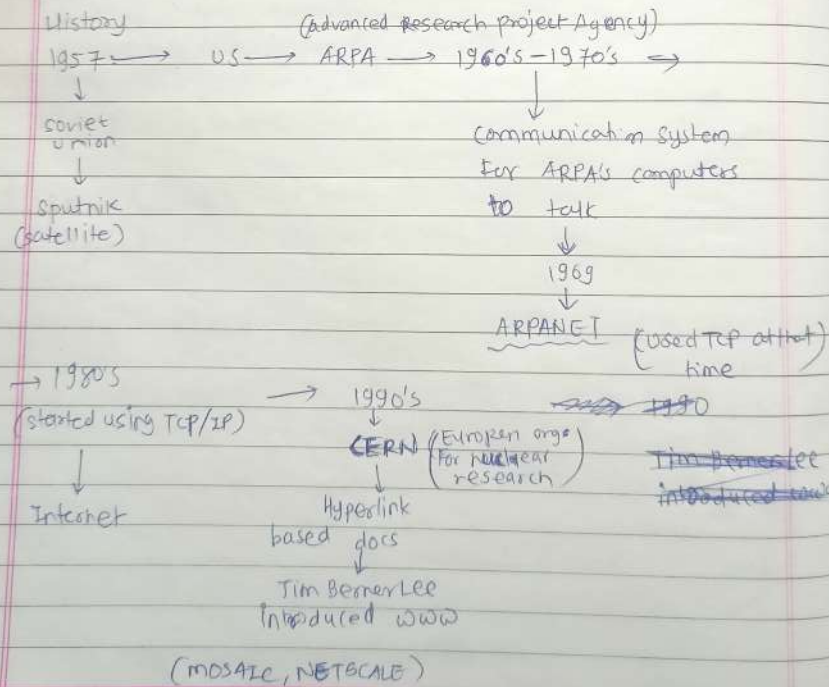 History
(advanced Research project Agency)
1957 → US → ARPA → 1960's-1970's →
↓
soviet
union
↓
sputnik
(satellite)
↓
Communication system
For ARPA's computers
to talk
↓
1969
↓
ARPANET (used TCP at that
time
→ 1980's
(started using TCP/IP)
↓
Internet
→ 1990's
↓
CERN (Europen orgo
For nuclear
research)
↓
Hyperlink
based docs
↓
Tim BernerLee
introduced www
1990
Tim BernersLee
introduced
(MOSAIC, NETSCALE)